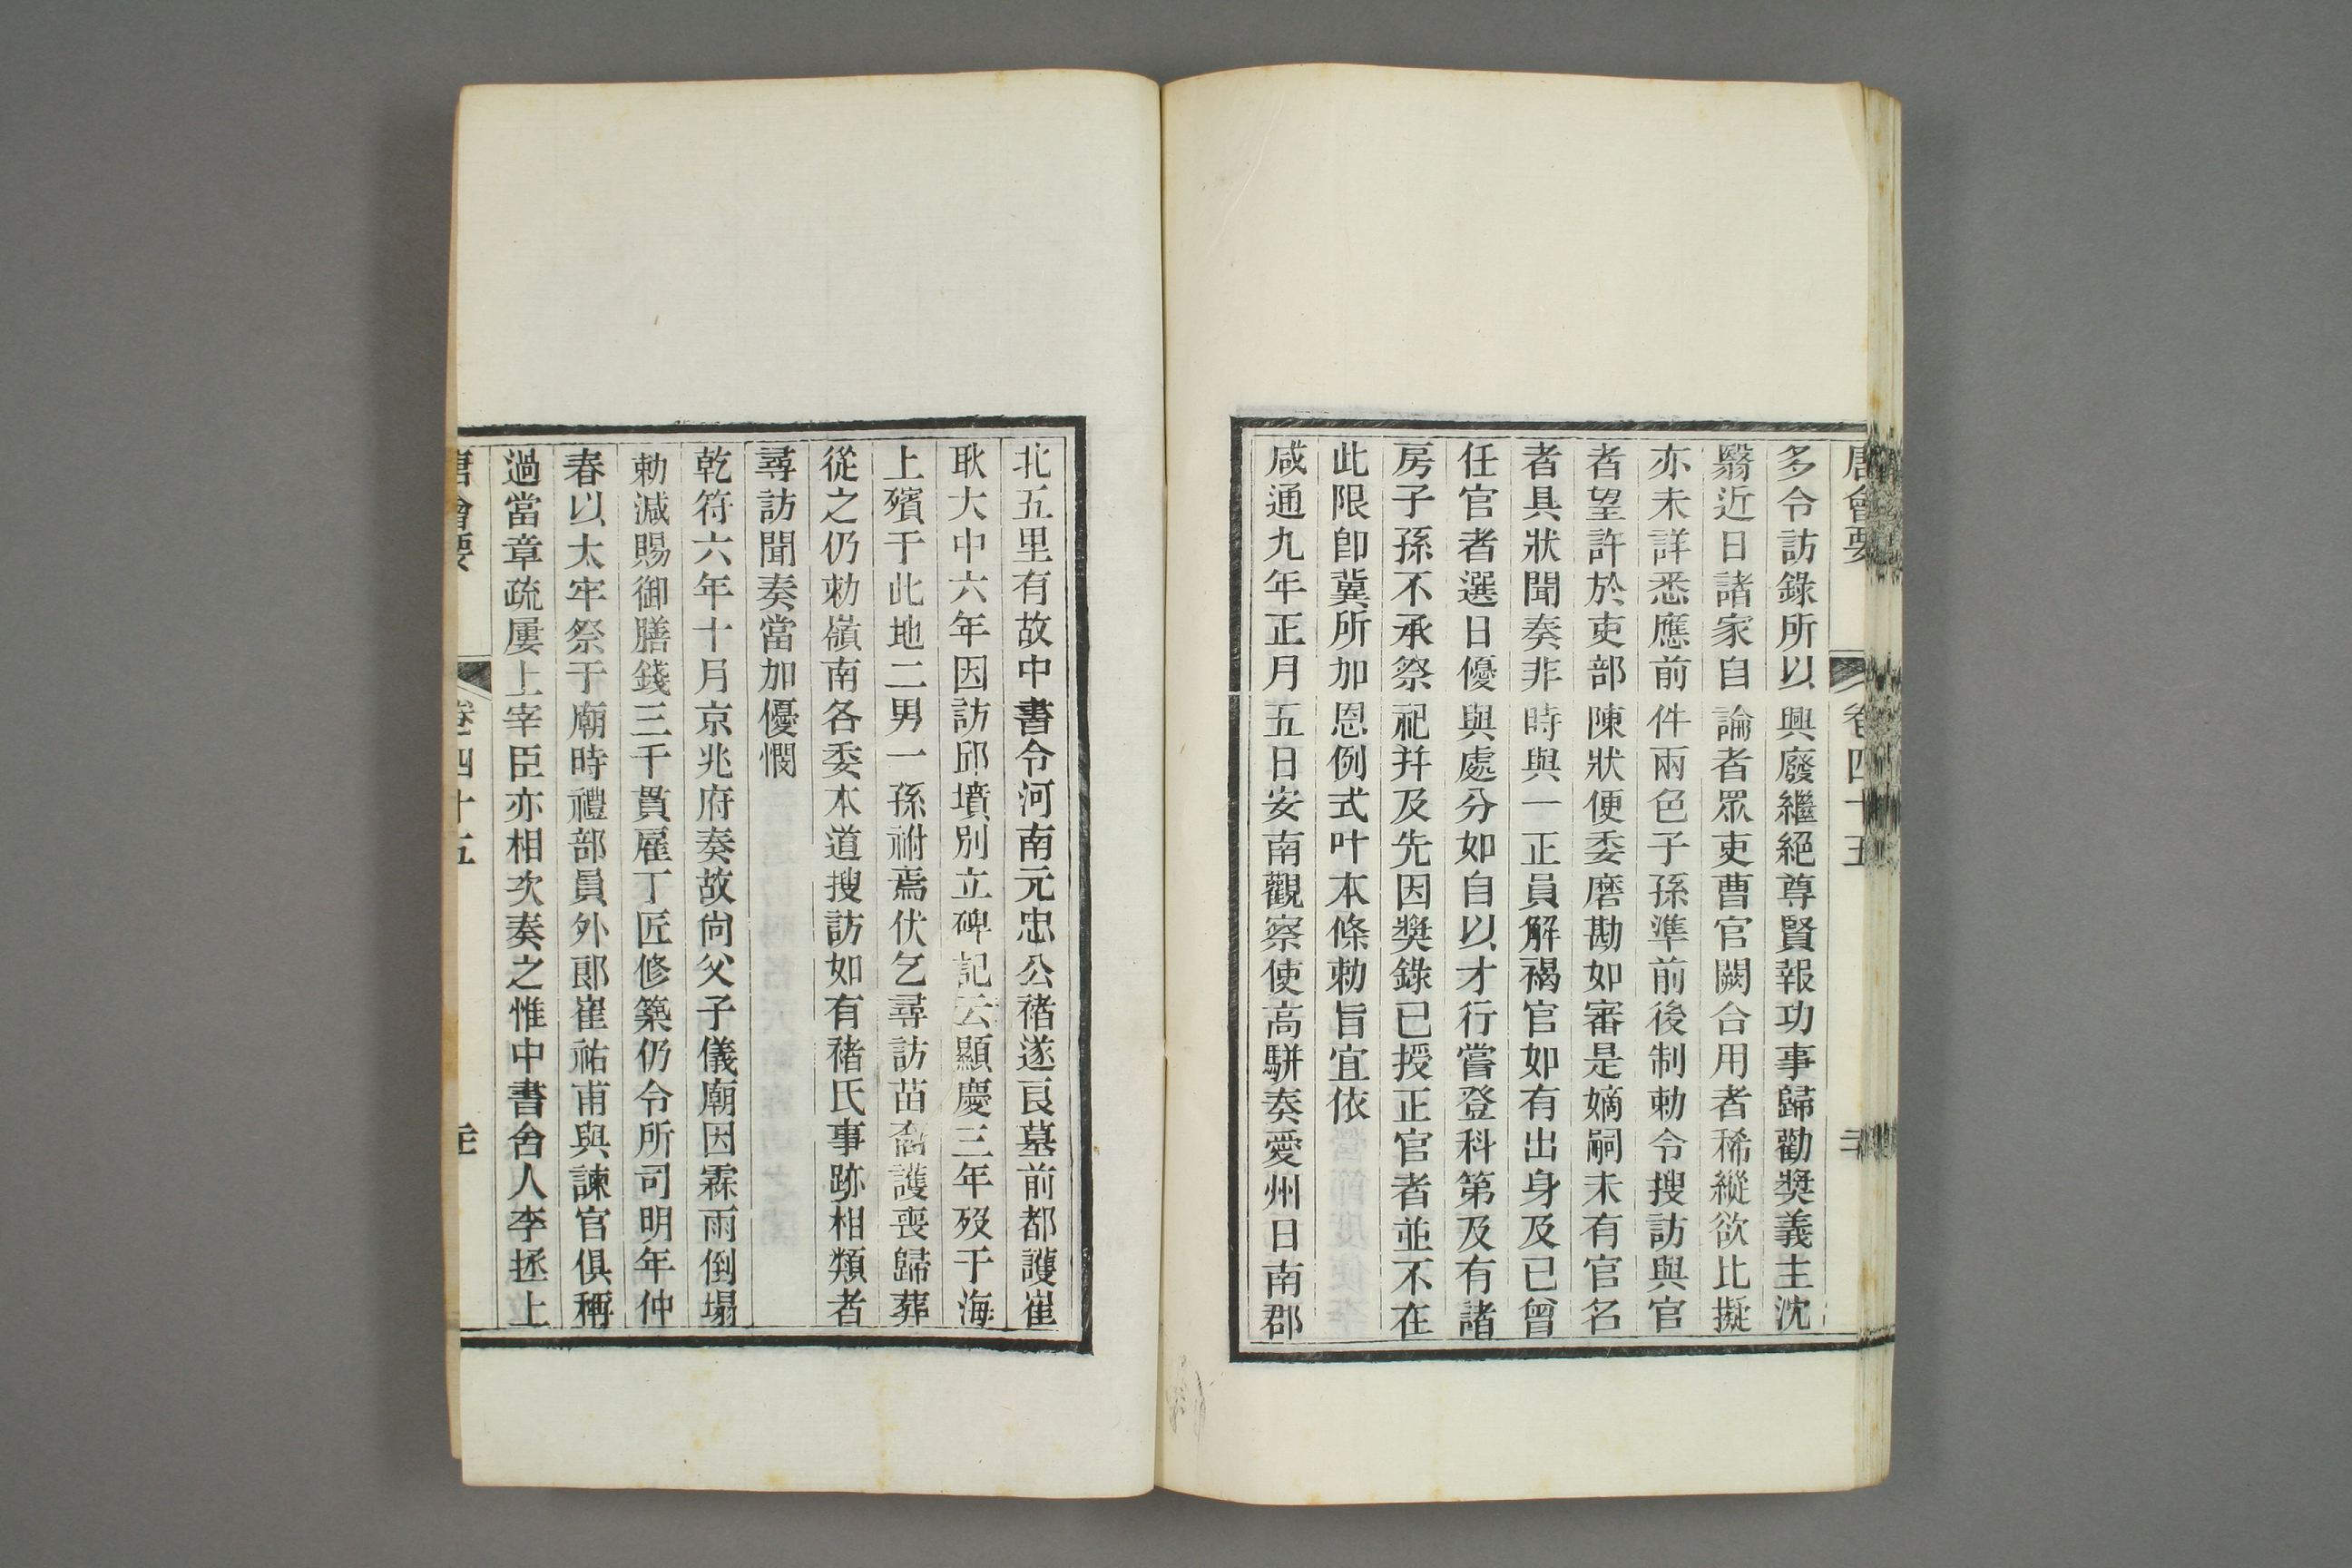 唐會要 卷四十五
多令訪錄所以興廢繼絕尊賢報功事歸勸獎義主沈
翳近日諸家自論者眾吏曹官闕合用者稀縱欲比擬
亦未詳悉應前件兩色子孫準前後制勅令搜訪與官
者望許於吏部陳狀便委磨勘如審是嫡嗣未有官名
者具狀聞奏非時與一正員解褐官如有出身及已曾
任官者選日優與處分如自以才行嘗登科第及有諸
房子孫不承祭祀并及先因獎錄已授正官者並不在
此限卽冀所加恩例式叶本條勅旨宜依
咸通九年正月五日安南觀察使高駢奏愛州日南郡
北五里有故中書令河南元忠公褚遂良墓前都護崔
耿大中六年因訪邱墳別立碑記云顯慶三年歿于海
上殯于此地二男一孫祔焉伏乞尋訪苗裔護喪歸葬
從之仍勅嶺南各委本道搜訪如有褚氏事跡相類者
尋訪聞奏當加優憫
乾符六年十月京兆府奏故尙父子儀廟因霖雨倒塌
勅減賜御膳錢三千貫雇丁匠修築仍令所司明年仲
春以太牢祭于廟時禮部員外郞崔祐甫與諫官俱稱
過當章疏屢上宰臣亦相次奏之惟中書舍人李拯上
唐會要 卷四十五